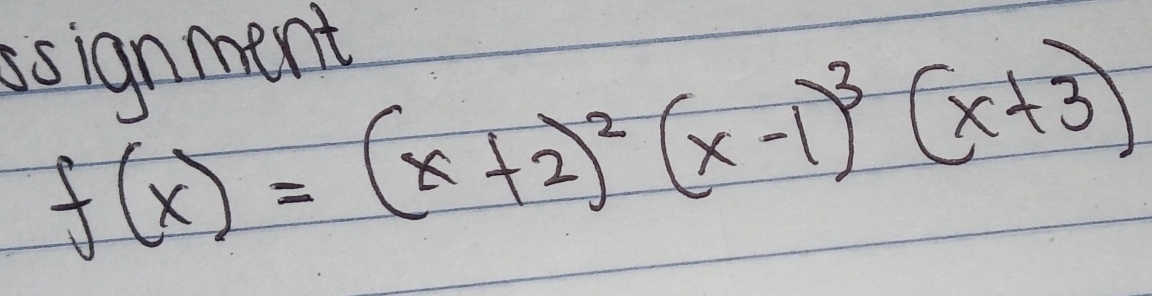 ssignment
f(x) = (x+2)² (x-1)³ (x+3)